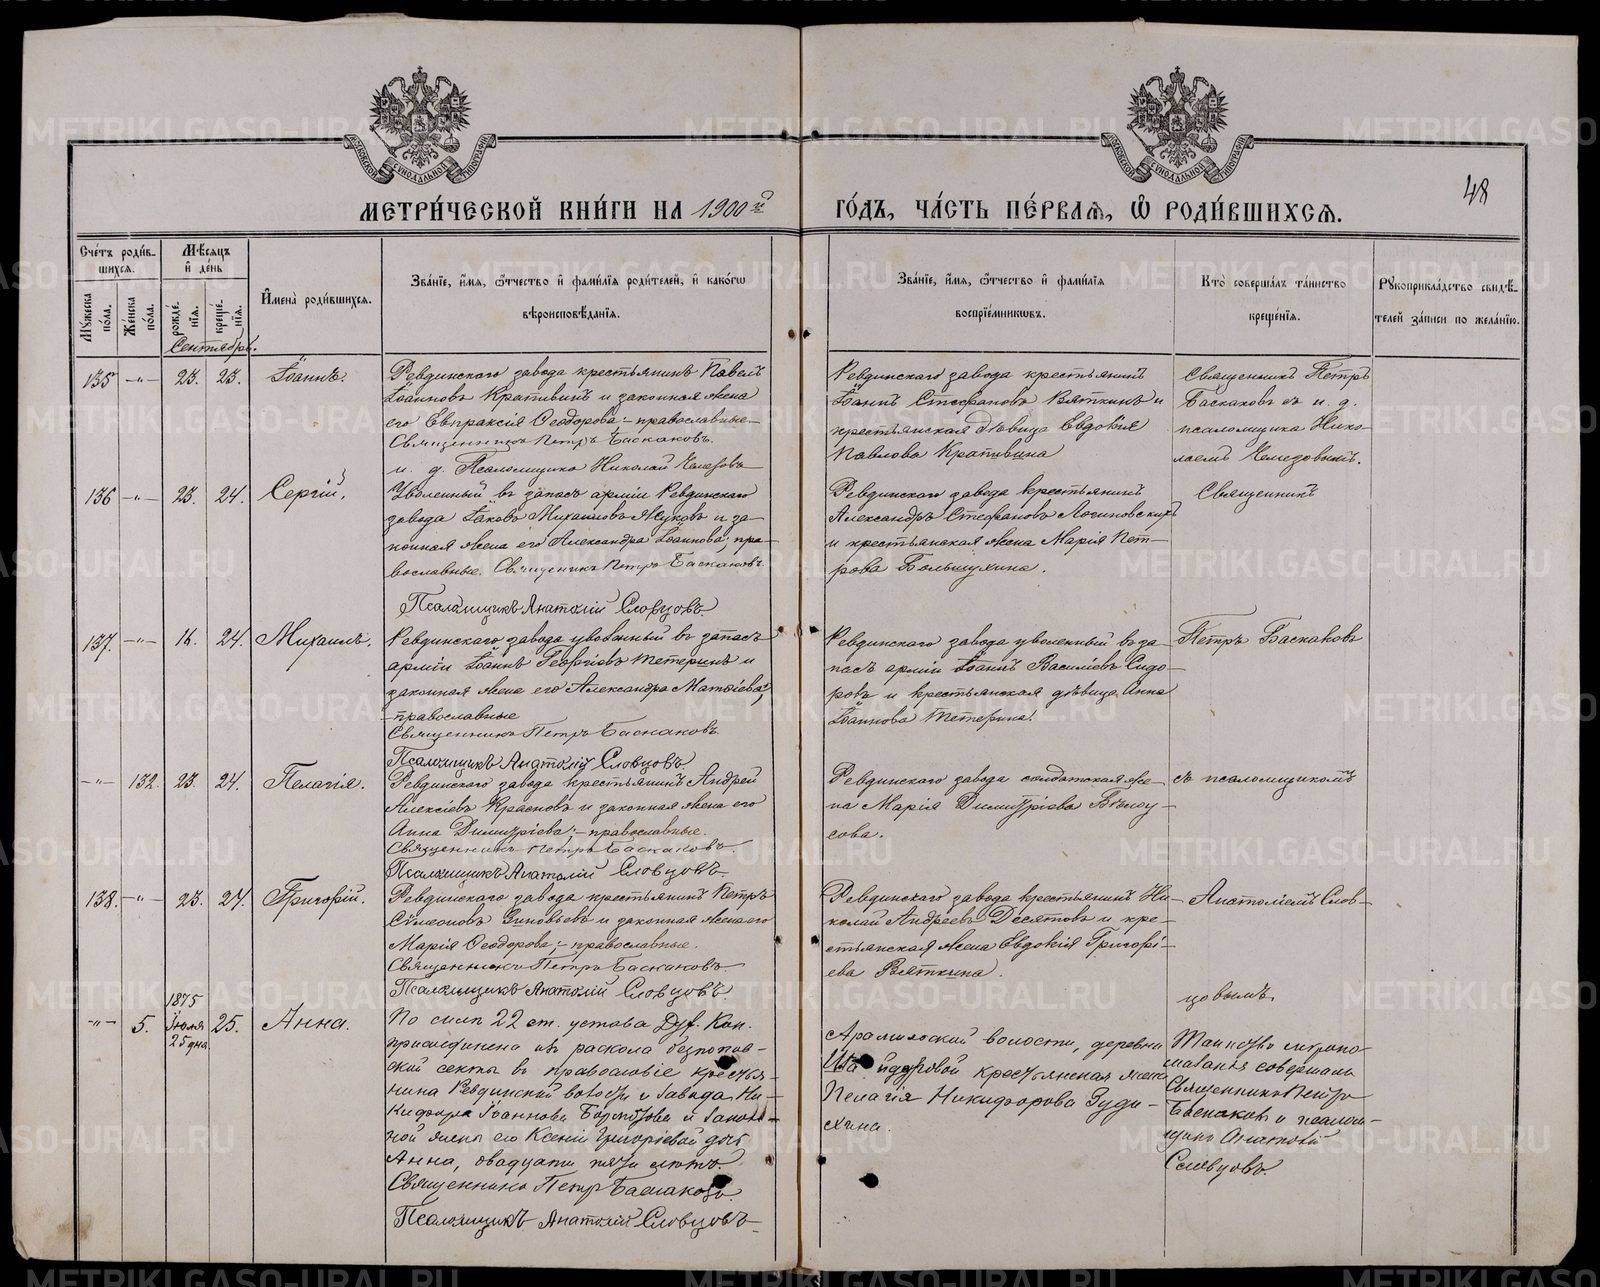 МЕТРИКИ.GASO-URAL.RU
МОСКОВСКОЙ СУНОДАЛЬНОЙ ТИПОГРАФІИ
МОСКОВСКОЙ СУНОДАЛЬНОЙ ТИПОГРАФІИ
МЕТРИ́ЧЕСКОЙ КНИ́ГИ НА 1900й
ГО́ДЪ, ЧА́СТЬ ПЕ́РВАѦ, Ѡ РОДИ́ВШИХСѦ.
48
Сче́тъ роди́в-
шихсѧ.
Мѣ́сѧцъ
и҆ де́нь
Мꙋжеска по́ла.
Же́нска по́ла.
рожде́-
нїѧ.
креще́-
нїѧ.
И҆мена̀ роди́вшихсѧ.
Зва́нїе, и҆́мѧ, ѻ҆́тчество и҆ фамі́лїѧ роди́телей, и҆ како́гѡ
вѣроисповѣ́данїѧ.
Зва́нїе, и҆́мѧ, ѻ҆́тчество и҆ фамі́лїѧ
воспрїе́мникѡвъ.
Кто̀ соверша́лъ та́инство
креще́нїѧ.
Рꙋкоприкла́дство свидѣ́-
телей за́писи по жела́нїю.
Сентябрь.
135 -"- 23. 23. Іоаннъ.
Ревдинскаго завода крестьянинъ Павелъ
Іоанновъ Крапивинъ и законная жена
его Евпраксія Ѳеодорова; - православные.
Священникъ Петръ Баскаковъ.
и. д. Псаломщика Николай Чемезовъ
Ревдинскаго завода крестьянинъ
Іоаннъ Стефановъ Вяткинъ и
крестьянская дѣвица Евдокія
Павлова Крапивина
Священникъ Петръ
Баскаковъ съ и. д.
псаломщика Нико-
лаемъ Чемезовымъ.
136 -"- 23. 24. Сергій.
Уволенный въ запасъ арміи Ревдинскаго
завода Іаковъ Михаиловъ Жуковъ и за-
конная жена его Александра Іоаннова; пра-
вославные. Священникъ Петръ Баскаковъ.
Псаломщикъ Анатолій Словцовъ.
Ревдинскаго завода крестьянинъ
Александръ Стефановъ Логиновскихъ
и крестьянская жена Марія Пет-
рова Большухина.
Священникъ
137. -"- 16. 24. Михаилъ.
Ревдинскаго завода уволенный въ запасъ
арміи Іоаннъ Георгіевъ Тетеринъ и
законная жена его Александра Матѳіева;
- православные
Священникъ Петръ Баскаковъ.
Псаломщикъ Анатолій Словцовъ.
Ревдинскаго завода уволенный въ за-
пасъ арміи Іоаннъ Василіевъ Сидо-
ровъ и крестьянская дѣвица Анна
Іоаннова Тетерина.
Петръ Баскаковъ
-"- 132. 23. 24. Пелагія.
Ревдинскаго завода крестьянинъ Андрей
Алексіевъ Красновъ и законная жена его
Анна Димитріева; - православные.
Священникъ Петръ Баскаковъ.
Псаломщикъ Анатолій Словцовъ.
Ревдинскаго завода солдатская же-
на Марія Димитріева Бѣлоу-
сова.
съ псаломщикомъ
138. -"- 23. 24. Григорій.
Ревдинскаго завода крестьянинъ Петръ
Сѵмеоновъ Зиновьевъ и законная жена его
Марія Ѳеодорова; - православные.
Священникъ Петръ Баскаковъ.
Псаломщикъ Анатолій Словцовъ.
Ревдинскаго завода крестьянинъ Ни-
колай Андреевъ Десятовъ и кре-
стьянская жена Евдокія Григорі-
ева Вяткина.
Анатоліемъ Слов-
цовымъ.
-"- 5. 1875 Іюля 25 дня. 25. Анна.
По силѣ 22 ст. устава Дух. Кон.
присоединена изъ раскола безпопов-
ской секты въ православіе крестья-
нина Ревдинской волости и завода Ни-
кифора Іоаннова и закон-
ной жены его Ксеніи Григоріевой дочь
Анна, двадцати пяти лѣтъ.
Священникъ Петръ Баскаковъ.
Псаломщикъ Анатолій Словцовъ
Арамильской волости, деревни
крестьянская жена
Пелагія Никифорова Зуди-
хина.
Таинство миропо-
мазанія совершалъ
Священникъ Петръ
Баскаковъ и псалом-
щикъ Анатолій
Словцовъ